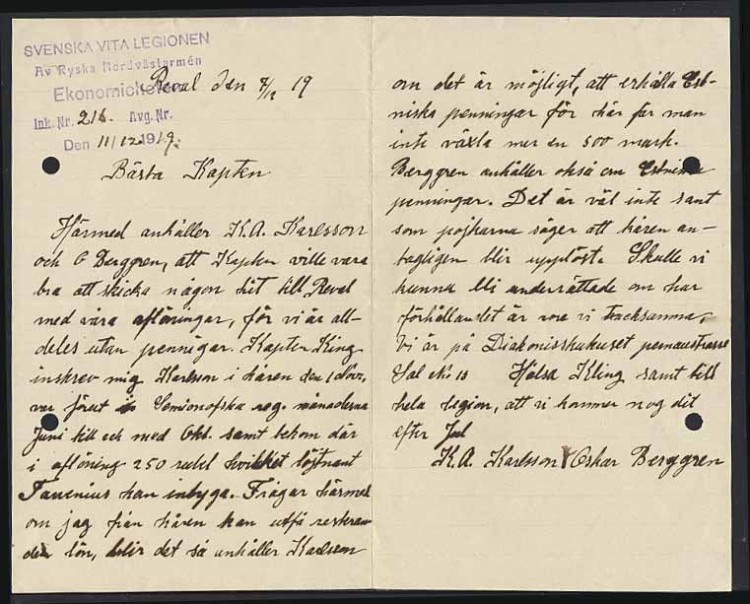 SVENSKA VITA LEGIONEN
Av Ryska Nordvästarmén
Ink. Nr. 216. Avg. Nr.
Den 11/12 1919.
Reval den 8/12 19
Bästa Kapten
Härmed anhåller K.A. Karlsson
och O Berggren, att Kapten ville vara
bra att skicka någon hit till Reval
med våra aflöningar, för vi är all-
deles utan penningar. Kapten Kling
inskrev mig Karlsson i hären den 1 Nov,
var förut i Semionofska reg. månaderna
Juni till och med Okt. samt bekom där
i aflöning 250 rubel hvilket löjtnant
kan intyga. Frågar härmed
om jag från hären kan utfå resteran-
de lön, blir det så anhåller Karlsson
om det är möjligt, att erhålla Est-
niska penningar för här får man
inte växla mer än 500 mark.
Berggren anhåller också om Estniska
penningar. Det är väl inte sant
som pojkarna säger att hären an-
tagligen blir upplöst. Skulle vi
kunna bli underrättade om hur
förhållandet är vore vi tacksamma,
Vi är på Diakonisshukuset pernaustrasse
Sal No 18 Hälsa Kling samt till
hela legion, att vi kommer nog dit
efter Jul
K.A. Karlsson Oskar Berggren